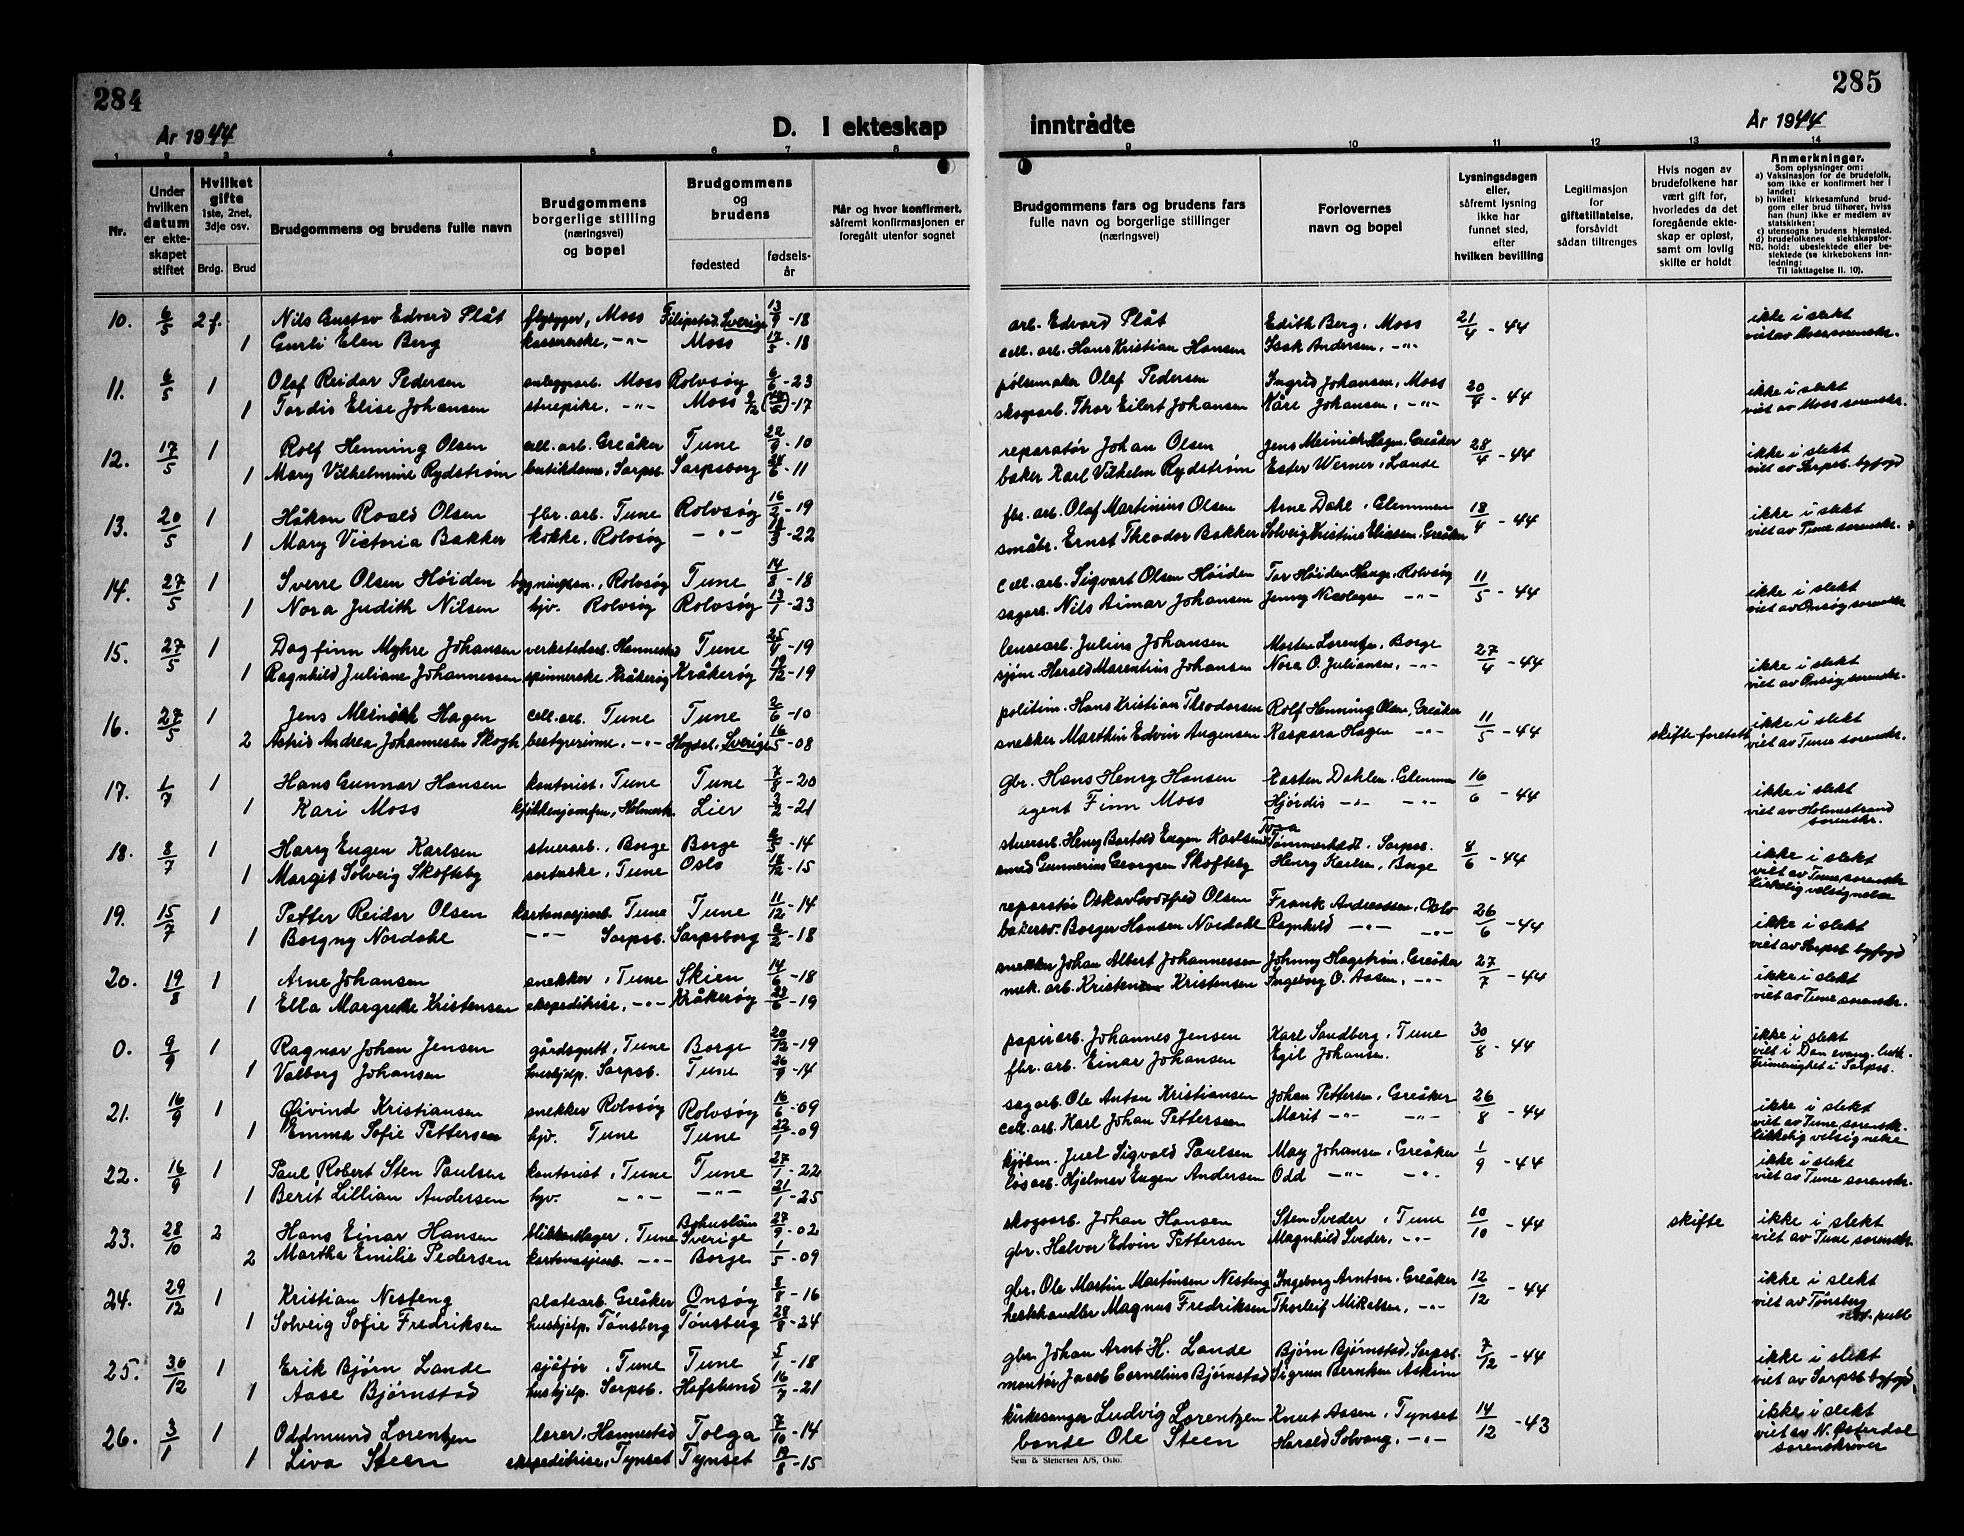 284
285
År 1944
D. I ekteskap
inntrådte
År 1944
1 2 3 4 5 6 7 8 9 10 11 12 13 14
Nr.
Under hvilken datum er ekteskapet stiftet
Hvilket gifte 1ste, 2net, 3dje osv.
Brdg. Brud
Brudgommens og brudens fulle navn
Brudgommens borgerlige stilling (næringsvei) og bopel
Brudgommens og brudens
fødested
fødselsår
Når og hvor konfirmert, såfremt konfirmasjonen er foregått utenfor sognet
Brudgommens fars og brudens fars fulle navn og borgerlige stillinger (næringsvei)
Forlovernes navn og bopel
Lysningsdagen eller, såfremt lysning ikke har funnet sted, efter hvilken bevilling
Legitimasjon for giftetillatelse, forsåvidt sådan tiltrenges
Hvis nogen av brudefolkene har vært gift før, hvorledes da det foregående ekteskap er opløst, samt om lovlig skifte er holdt
Anmerkninger.
Som oplysninger om:
a) Vaksinasjon for de brudefolk, som ikke er konfirmert her i landet;
b) hvilket kirkesamfund brudgom eller brud tilhører, hviss han (hun) ikke er medlem av statskirken;
c) utensogns brudens hjemsted.
d) brudefolkenes slektskapsforhold: ubeslektede eller beslektede (se kirkebokens innledning;
NB. Til iakttagelse II. 10).
10. 6/5 2 f. Nils Gustav Edvard Plåt flybygger, Moss Filipstad, Sverige 13/9 - 18 arb. Edvard Plåt Edith Berg, Moss 21/4 - 44 ikke i slekt
1 Gurli Elen Berg kassererske, -"- Moss 17/5 - 18 cell. arb. Hans Kristian Hansen Isak Andersen, -"- viet av Moss sorenskr.
11. 6/5 1 Olaf Reidar Pedersen anleggsarb. Moss Rolvsøy 6/6 - 23 pølsemaker Olaf Pedersen Ingrid Johansen, Moss 20/4 - 44 ikke i slekt
1 Tordis Elise Johansen stuepike, -"- Moss - 17 skogsarb. Thor Eilert Johansen Kåre Johansen, -"- viet av Moss sorenskr.
12. 17/5 1 Rolf Henning Olsen cell. arb. Greåker Tune 22/9 - 10 reparatør Johan Olsen Jens Meinich Hagen, Greåker 28/4 - 44 ikke i slekt
1 Mary Vilhelmine Rydstrøm butikdame, Sarpsb. Sarpsborg 24/6 - 11 baker Karl Vilhelm Rydstrøm Ester Werner, Lande viet av Sarpsb. byfogd
13. 20/5 1 Håkon Roald Olsen fbr. arb. Tune Rolvsøy 16/2 - 19 fbr. arb. Olaf Martinius Olsen Arne Dahl, Glemmen 18/4 - 44 ikke i slekt
1 Mary Victoria Bakker kokke, Rolvsøy -"- - 22 småbr. Ernst Theodor Bakker Solveig Kristine Eliassen, Greåker viet av Tune sorenskr.
14. 27/5 1 Sverre Olsen Høiden bygningssn., Rolvsøy Tune 14/8 - 18 cell. arb. Sigvart Olsen Høiden Tor Høiden Hauge, Rolvsøy 11/5 - 44 ikke i slekt
1 Nora Judith Nilsen hjv. Rolvsøy Rolvsøy 13/1 - 23 sagarb. Nils Aimar Johansen Jenny Nicolaysen -"- viet av Onsøy sorenskr.
15. 27/5 1 Dagfinn Myhre Johansen verkstedarb. Hannestad Tune 25/4 - 19 lensearb. Julius Johansen Morten Lorentzen, Borge 27/4 - 44 ikke i slekt
1 Ragnhild Juliane Johannessen spinnerske, Kråkerøy Kråkerøy 19/12 - 19 sjøm. Harald Marentius Johansen Nora O. Juliansen, -"- viet av Onsøy sorenskr.
16. 27/5 1 Jens Meinich Hagen cell. arb. Tune Tune 2/6 - 10 politim. Hans Kristian Theodorsen Rolf Henning Olsen, Greåker 11/5 - 44 ikke i slekt
2 Astrid Andrea Johannesen Skogh bestyrerinne, -"- Hogdal, Sverige 16/5 - 08 snekker Marthin Edvin Angensen Kaspara Hagen -"- skifte foretatt viet av Tune sorenskr.
17. 1/7 1 Hans Gunnar Hansen kontorist, Tune Tune 7/8 - 20 gbr. Hans Henry Hansen Karsten Dahlen, Glemmen 16/6 - 44 ikke i slekt
1 Kari Moss kjøkkenjomfru, Holmestr. Lier 2/2 - 21 agent Finn Moss Hjørdis -"- -"- viet av Holmestrand sorenskr.
18. 8/7 1 Harry Eugen Karlsen stuerarb., Borge Borge 2/5 - 14 stuerarb. Henry Bartold Eugen Karlsen Tora Tømmerholdt, Sarpsb. 8/6 - 44 ikke i slekt
1 Margit Solveig Skofteby sorterske, Tune Oslo 18/12 - 15 smed Gunnerius Georgsen Skofteby Henry Karlsen, Borge viet av Tune sorenskr. kirkelig velsignelse
19. 15/7 1 Petter Reidar Olsen kartonasjearb. Tune Tune 11/12 - 14 reparatør Oskar Godtfred Olsen Frank Andreassen, Oslo 26/6 - 44 ikke i slekt
1 Borgny Nordahl -"- Sarpsb. Sarpsborg 2/2 - 18 bakersv. Borger Hansen Nordahl Ragnhild -"- -"- viet av Sarpsb. byfogd
20. 19/8 1 Arne Johansen snekker, Tune Skien 14/6 - 18 snekker Johan Albert Johannessen Johnny Hagstrøm, Greåker 27/7 - 44 ikke i slekt
1 Ella Margrethe Kristensen ekspeditrise, -"- Kråkerøy 23/6 - 19 mek. arb. Kristen Kristensen Ingeborg O. Aasen, -"- viet av Tune sorenskr.
0. 9/9 1 Ragnar Johan Jensen gårdsgutt, Tune Borge 20/12 - 19 papirarb. Johannes Jensen Karl Sandberg, Tune 30/8 - 44 ikke i slekt
1 Valborg Johansen hushjelp, Sarpsb. Tune 26/9 - 14 fbr. arb. Einar Johansen Egil Johansen. viet i Den evang. luth. Frimenighet i Sarpsb.
21. 16/9 1 Øivind Kristiansen snekker Rolvsøy Rolvsøy 16/6 - 09 sagarb. Ole Anton Kristiansen Johan Pettersen, Greåker 26/8 - 44 ikke i slekt
1 Emma Sofie Pettersen hjv. Tune Tune 22/1 - 09 cell. arb. Karl Johan Pettersen Marit -"- -"- viet av Tune sorenskr. kirkelig velsignelse
22. 16/9 1 Paul Robert Sten Paulsen kontorist, Tune Tune 27/1 - 22 kjøbm. Juel Sigvald Paulsen May Johansen, Greåker 1/9 - 44 ikke i slekt
1 Berit Lillian Andersen hjv. -"- -"- 21/1 - 25 løsarb. Hjelmar Eugen Andersen Odd -"- -"- viet av Tune sorenskr.
23. 28/10 2 Hans Einar Hansen blikkenslager, Tune Bohuslän Sverige 27/9 - 02 skogsarb. Johan Hansen Sten Sveder, Tune 10/10 - 44 skifte ikke i slekt
2 Martha Emilie Pedersen kartonasjearb. -"- Borge 1/5 - 09 gbr. Halvor Edvin Pettersen Magnhild Sveder, -"- viet av Tune sorenskr.
24. 29/12 1 Kristian Nesteng platearb. Greåker Onsøy 8/8 - 16 gbr. Ole Martin Martinsen Nesteng Ingeborg Arntsen, Greåker 12/12 - 44 ikke i slekt
1 Solveig Sofie Fredriksen hushjelp, Tønsberg Tønsberg 28/8 - 24 hestehandler Magnus Fredriksen Thorleif Mikelsen, -"- viet av Tønsberg not. publ
25. 30/12 1 Erik Bjørn Lande sjåfør, Tune Tune 5/1 - 18 gbr. Johan Arnt H. Lande Bjørn Bjørnstad, Sarpsb. 7/12 - 44 ikke i slekt
1 Aase Bjørnstad hushjelp, Sarpsb. Hafslund 16/7 - 21 montør Jacob Cornelius Bjørnstad Sigrun Berntsen Askim viet av Sarpsb byfogd
26. 3/1 1 Oddmund Lorentzen lærer, Hannestad Tolga 7/10 - 14 kirkesanger Ludvig Lorentzen Knut Aasen, Tynset 14/12 - 43 ikke i slekt
1 Liva Steen ekspeditrise, Tynset Tynset 19/8 - 15 bonde Ole Steen Harald Solvang, -"- viet av N. Østerdal sorenskriver
Sem & Stenersen A/S, Oslo.